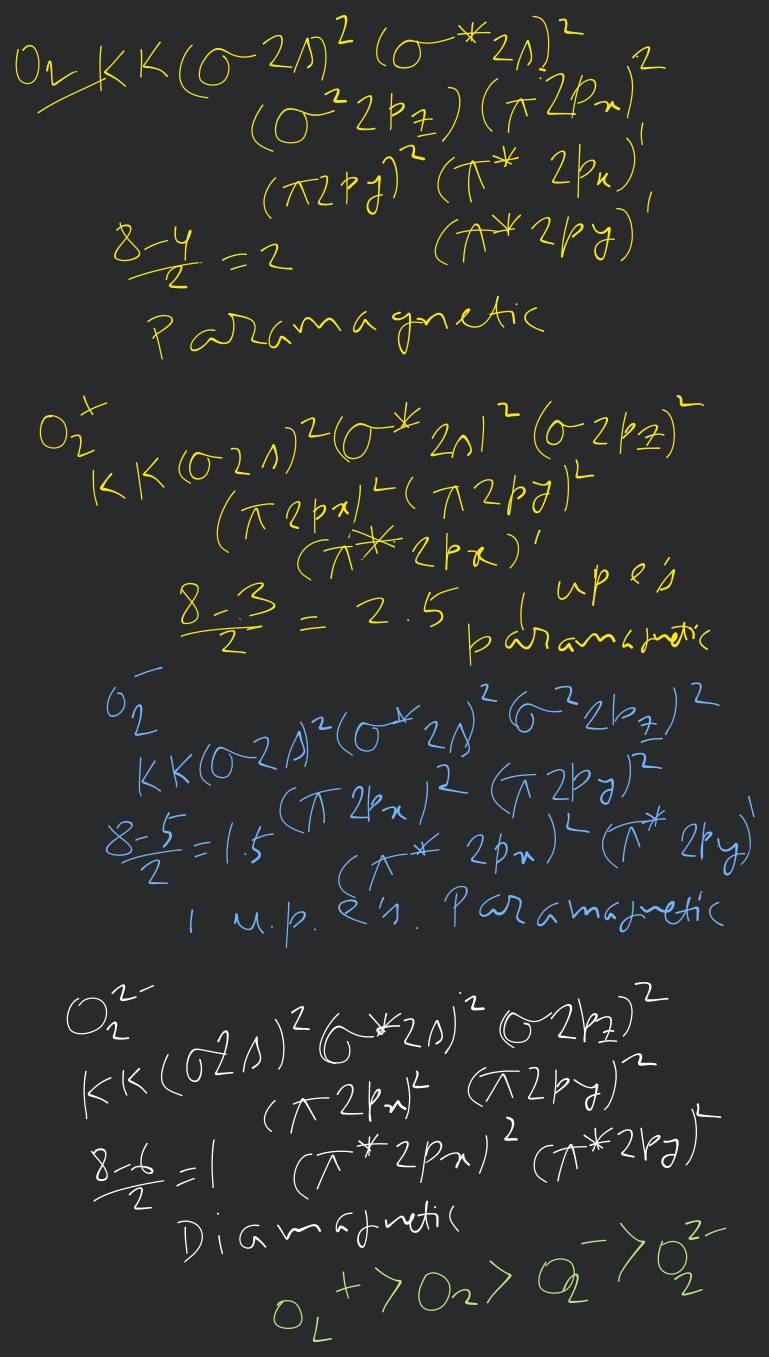 O₂ KK(σ2s)² (σ*2s)²
(σ²2pz) (π2px)²
(π2py)² (π* 2px)¹
8-4/2 = 2 (π*2py)¹
Paramagnetic
O₂⁺
KK(σ2s)²(σ*2s)²(σ2pz)²
(π2px)²(π2py)²
(π*2px)¹
8-3/2 = 2.5 1 up e's
paramagnetic
O₂⁻
KK(σ2s)²(σ*2s)²(σ²2pz)²
(π2px)² (π2py)²
8-5/2 = 1.5 (π* 2px)² (π* 2py)¹
1 u.p. e's. Paramagnetic
O₂²⁻
KK(σ2s)²(σ*2s)² σ2pz)²
(π2px)² (π2py)²
8-6/2 = 1 (π*2px)² (π*2py)²
Diamagnetic
O₂⁺ > O₂ > O₂⁻ > O₂²⁻